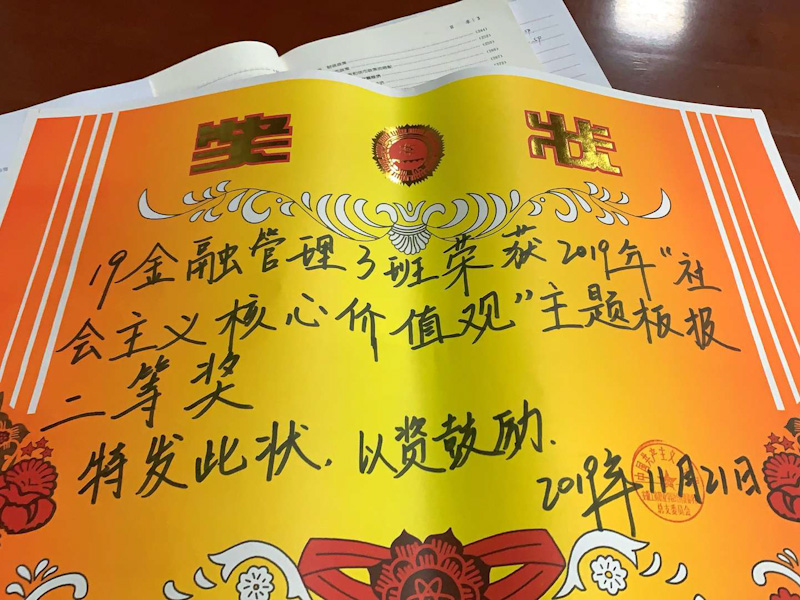 奖 状
19金融管理3班荣获2019年“社
会主义核心价值观”主题板报
二等奖
特发此状,以资鼓励.
2019年11月21日
总支委员会